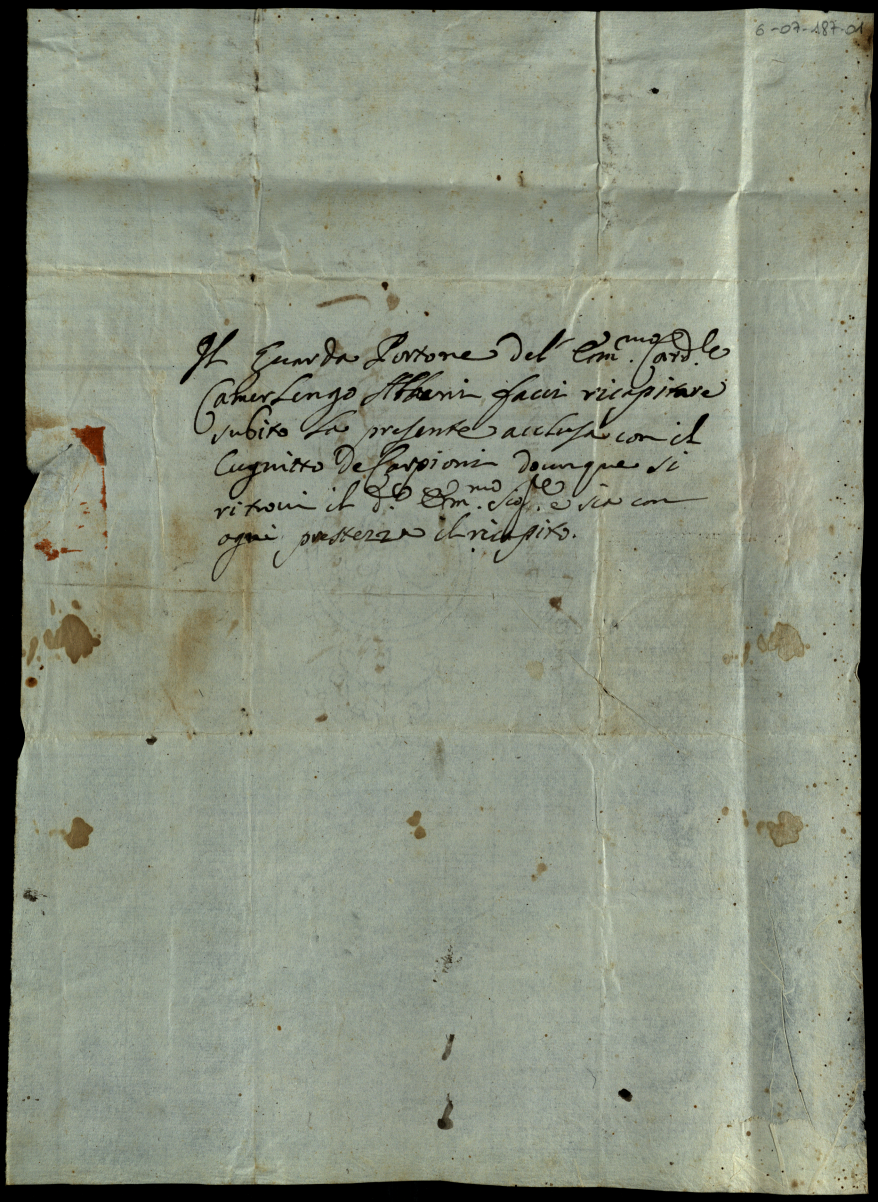 6-07-487-01
Il Guarda Portone del Em.mo Card.le
Camerlengo Albani facci ricapitare
subito la presente acclusa con il
Cugnitto de Scarpioni dounque si
ritrovi il d.o Em.mo Sig.re e sia con
ogni prestezza il ricapito.